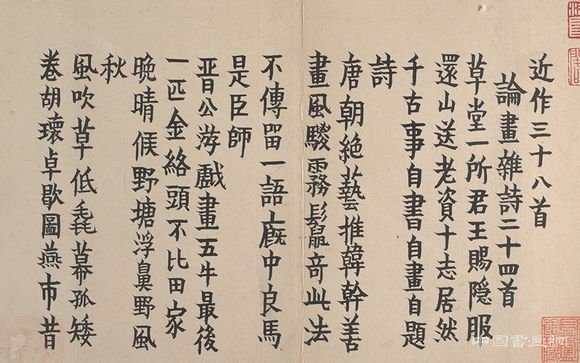 近作三十八首
論畫雜詩二十四首
草堂一所君王賜隐服
還山送老資十志居然
千古事自書自畫自題
詩
唐朝絕藝推韓幹善
畫風騣霧鬣奇此法
不傳留一語廐中良馬
是臣師
晉公游戲畫五牛最後
一匹金絡頭不比田家
晚晴候野塘浮鼻野風
秋
風吹草低毳幕孤矮
卷胡瓌卓歇圖燕市昔
中国书画网